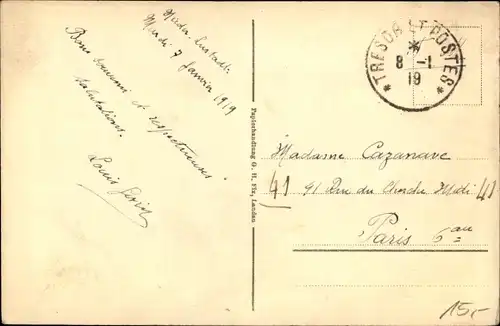 Nieder Lustadt
Mardi 7 Janvier 1919
Bons souvenirs et respectueuses
salutations.
Louis
Papierhandlung G. H. Fix, Landau
* TRESOR ET POSTES *
*
8 -1
19
Madame Cazanave
41 91 Rue du Cherche Midi 41
Paris 6
15,-